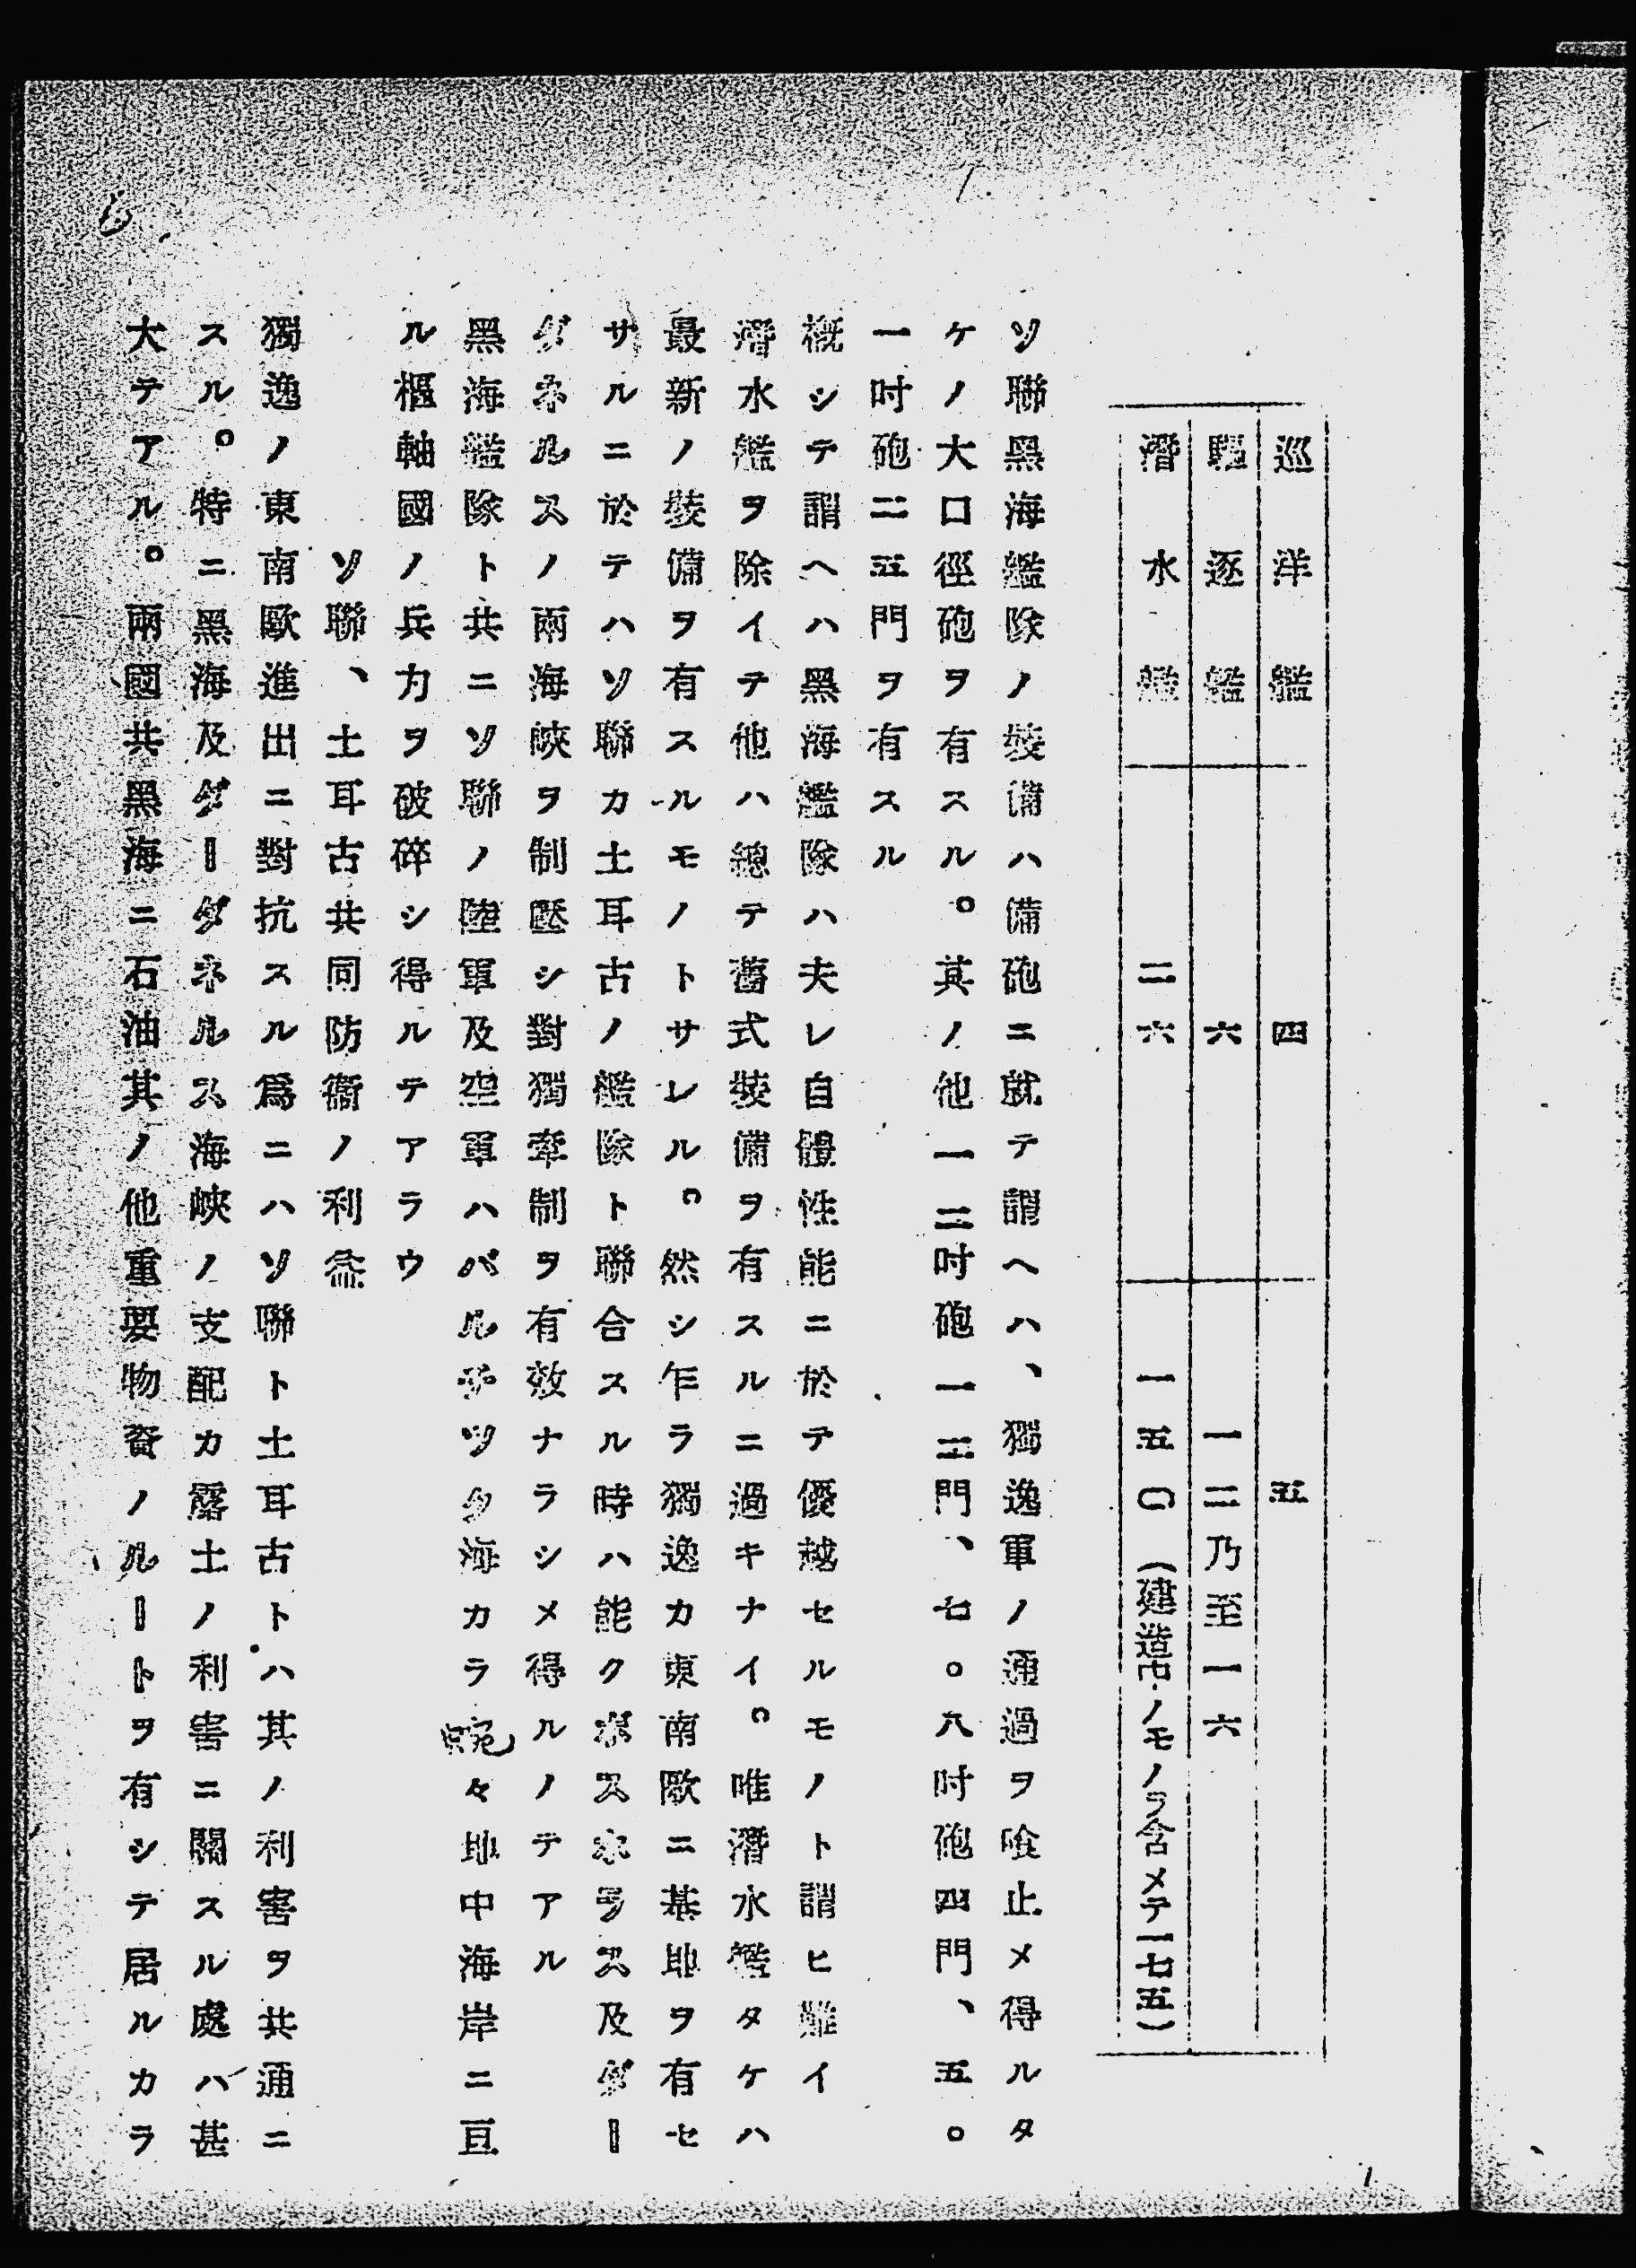 巡洋艦 四 五
驅逐艦 六 一二乃至一六
潛水艦 二六 一五〇（建造中ノモノヲ含メテ一七五）
ソ聯黑海艦隊ノ裝備ハ備砲ニ就テ謂ヘハ、獨逸軍ノ通過ヲ喰止メ得ルタ
ケノ大口徑砲ヲ有スル。其ノ他一二吋砲一二門、七。八吋砲四門、五。
一吋砲二五門ヲ有スル
槪シテ謂ヘハ黑海艦隊ハ夫レ自體性能ニ於テ優越セルモノト謂ヒ難イ
潛水艦ヲ除イテ他ハ總テ舊式裝備ヲ有スルニ過キナイ。唯潛水艦タケハ
最新ノ裝備ヲ有スルモノトサレル。然シ乍ラ獨逸カ東南歐ニ基地ヲ有セ
サルニ於テハソ聯カ土耳古ノ艦隊ト聯合スル時ハ能クボスホラス及ダー
ダネルスノ兩海峽ヲ制壓シ對獨牽制ヲ有效ナラシメ得ルノテアル
黑海艦隊ト共ニソ聯ノ陸軍及空軍ハバルチツク海カラ蜿々地中海岸ニ亘
ル樞軸國ノ兵力ヲ破碎シ得ルテアラウ
ソ聯、土耳古共同防衞ノ利益
獨逸ノ東南歐進出ニ對抗スル爲ニハソ聯ト土耳古トハ其ノ利害ヲ共通ニ
スル。特ニ黑海及ダーダネルス海峽ノ支配カ露土ノ利害ニ關スル處ハ甚
大テアル。兩國共黑海ニ石油其ノ他重要物資ノルートヲ有シテ居ルカラ